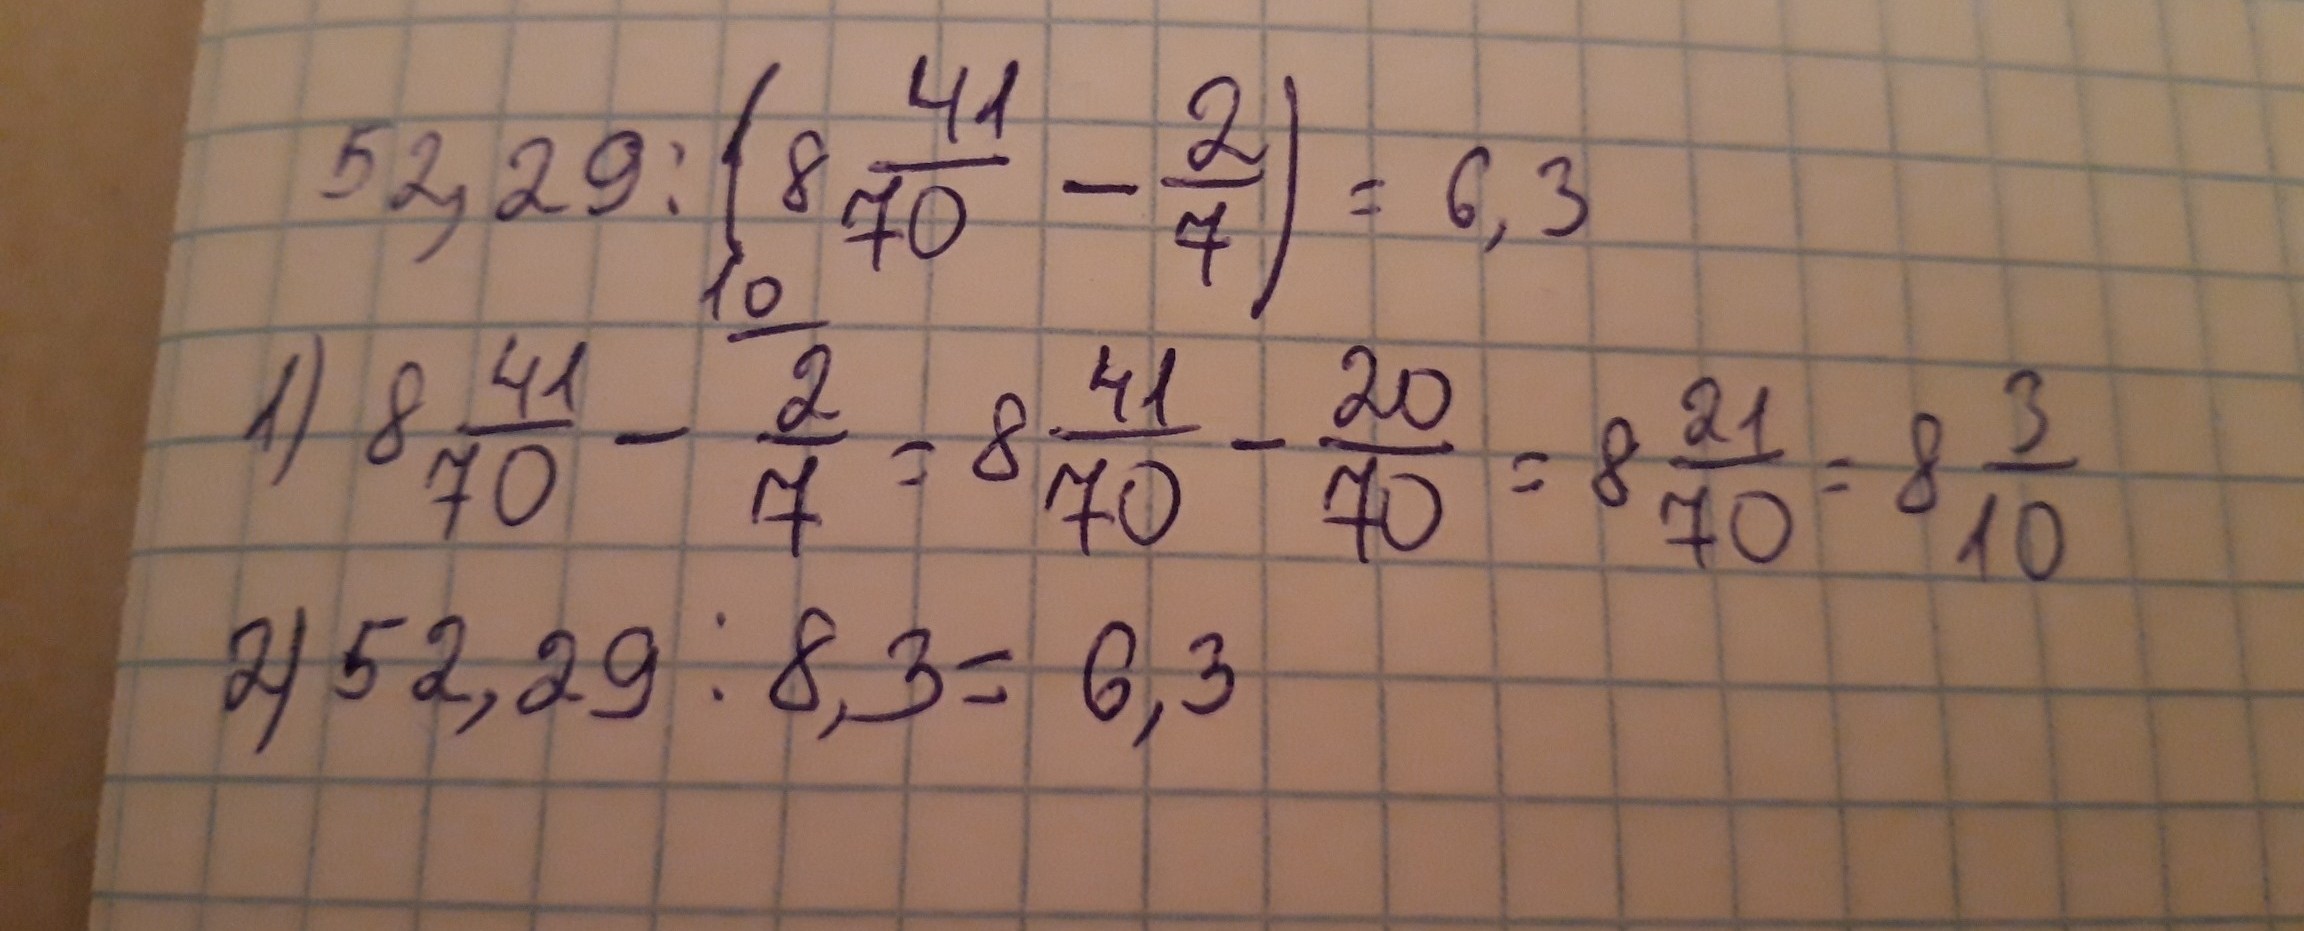 52,29 : (8 41/70 - 2/7) = 6,3
10
1) 8 41/70 - 2/7 = 8 41/70 - 20/70 = 8 21/70 = 8 3/10
2) 52,29 : 8,3 = 6,3